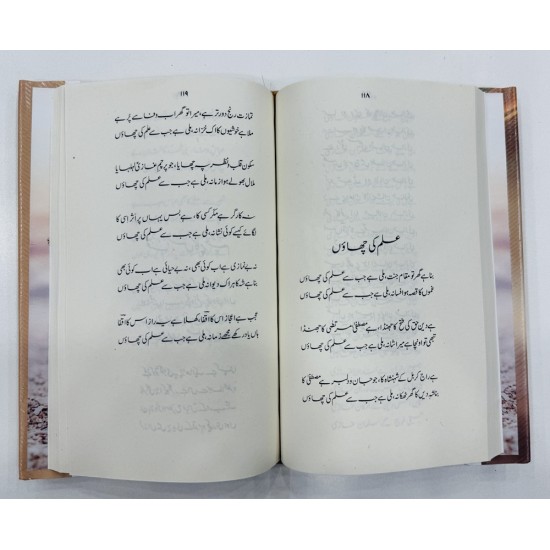 ۱۱۸
علم کی چھاؤں
بنا ہے گھر تو مقامِ جنت، ملی ہے جب سے علم کی چھاؤں
غموں کا قصہ ہوا فسانہ، ملی ہے جب سے علم کی چھاؤں
ہے دینِ حق کی فتح کا جھنڈا، ہے مصطفیٰ مرتضیٰ کا جھنڈا
تبھی تو اونچا ہے میرا شانہ، ملی ہے جب سے علم کی چھاؤں
ہے راج کربل کے شہنشاہ کا، جو جان و دلبر ہے مصطفیٰ کا
بنا ہے دیں کا گھر ٹھکانہ، ملی ہے جب سے علم کی چھاؤں
۱۱۹
تمازتِ رنج دور تر ہے، میرا تو گھر اب وفا سے پر ہے
ملا ہے خوشیوں کا اک خزانہ، ملی ہے جب سے علم کی چھاؤں
سکون قلب و نظر پہ چھایا، جو پرچم غازی لہلہایا
ملال بھولے ہوا زمانہ، ملی ہے جب سے علم کی چھاؤں
نہ کارگر ہے مکر کسی کا، ہے بس یہاں پر اثر اسی کا
لگائے کیسے کوئی نشانہ، ملی ہے جب سے علم کی چھاؤں
نہ بے نمازی ہے اب کوئی بھی، نہ بے حیائی ہے اب کوئی بھی
بنا ہے شہ کا ہر اک دیوانہ، ملی ہے جب سے علم کی چھاؤں
عجب ہے اعجاز اس کا کھلا ہے یہ راز اس کا
ہاں یاد رکھے مجھے زمانہ، ملی ہے جب سے علم کی چھاؤں